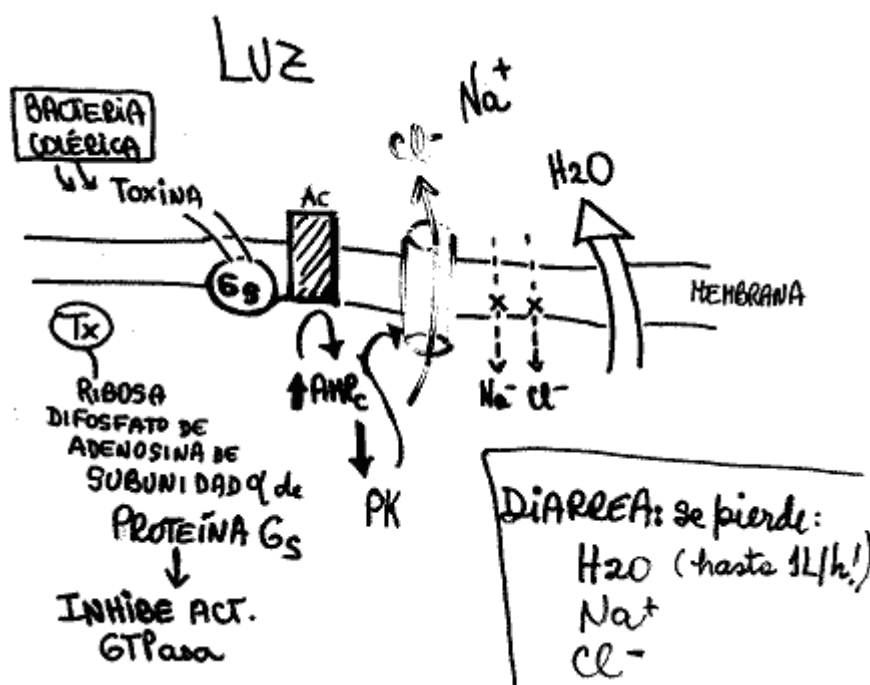 LUZ
BACTERIA
COLÉRICA
TOXINA
Gs
AC
Cl-
Na+
H2O
MEMBRANA
Na- Cl-
↑AMPc
PK
Tx
RIBOSA
DIFOSFATO DE
ADENOSINA DE
SUBUNIDAD α de
PROTEÍNA Gs
INHIBE ACT.
GTPasa
DIARREA: se pierde:
H2O (hasta 1L/h!)
Na+
Cl-